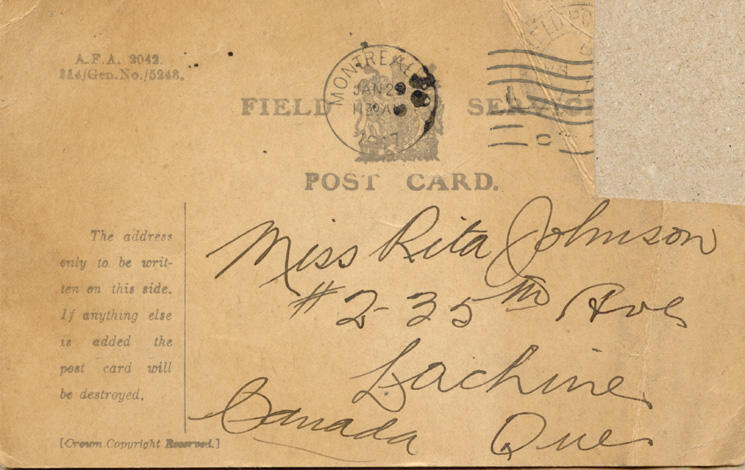 A.F.A. 2042.
114/Gen.No./5248.
MONTREAL
JAN 29
11 30 AM
1917
FIELD SERVICE
POST CARD.
The address
only to be writ-
ten on this side.
If anything else
is added the
post card will
be destroyed.
[Crown Copyright Reserved.]
Miss Rita Johnson
#2-35th Ave
Lachine
Canada Que